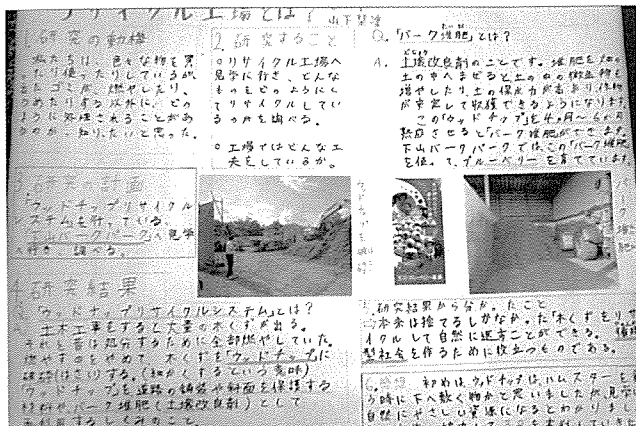 リサイクル工場とは?
研究の動機
私たちは、色々な物を買
ったり使ったりしている
またゴミが燃やしたり、
うめたりする以外に、どの
ように処理されることがあ
るのか、知りたいと思った。
2.研究すること
○リサイクル工場へ
見学に行き、どんな
ものをどのようにし
てリサイクルしてい
るのかを調べる。
○工場ではどんな工
夫をしているか。
Q.「バーク堆肥」とは?
A. 土壌改良剤のことです。堆肥を畑の
土の中へまぜると土の中の微生物を
増やしたり、土の保水力が高まり作物
が安定して収穫できるようになります。
この「ウッドチップ」を4ヶ月〜6ヶ月
熟成させると「バーク堆肥」ができます。
下山バークパークではこの「バーク堆肥」
を使って、ブルーベリーを育てています
3.研究の計画
「ウッドチップリサイクル
システム」を行っている。
下山バークパークへ見学
へ行き 調べる。
4.研究結果
「ウッドチップリサイクルシステム」とは?
土木工事をすると大量の木くずが出る。
それを昔は処分するために全部燃やしていた。
燃やすのをやめて 木くずを「ウッドチップ」に
破砕(はさい)する。(細かくするという意味)
ウッドチップを道路の舗装や斜面を保護する
材料やバーク堆肥(土壌改良剤)として
再利用するしくみのこと。
5.研究結果から分かったこと
○本来は捨てるしかなかった「木くずをリサ
イクルして自然に返すことができる。循環
型社会を作るために役立つものである。
6.感想 初めは、ウッドチップは、ハムスターを飼
う時に下へ敷く物かと思いましたが、見学
自然にやさしい資源になるとわかりまし